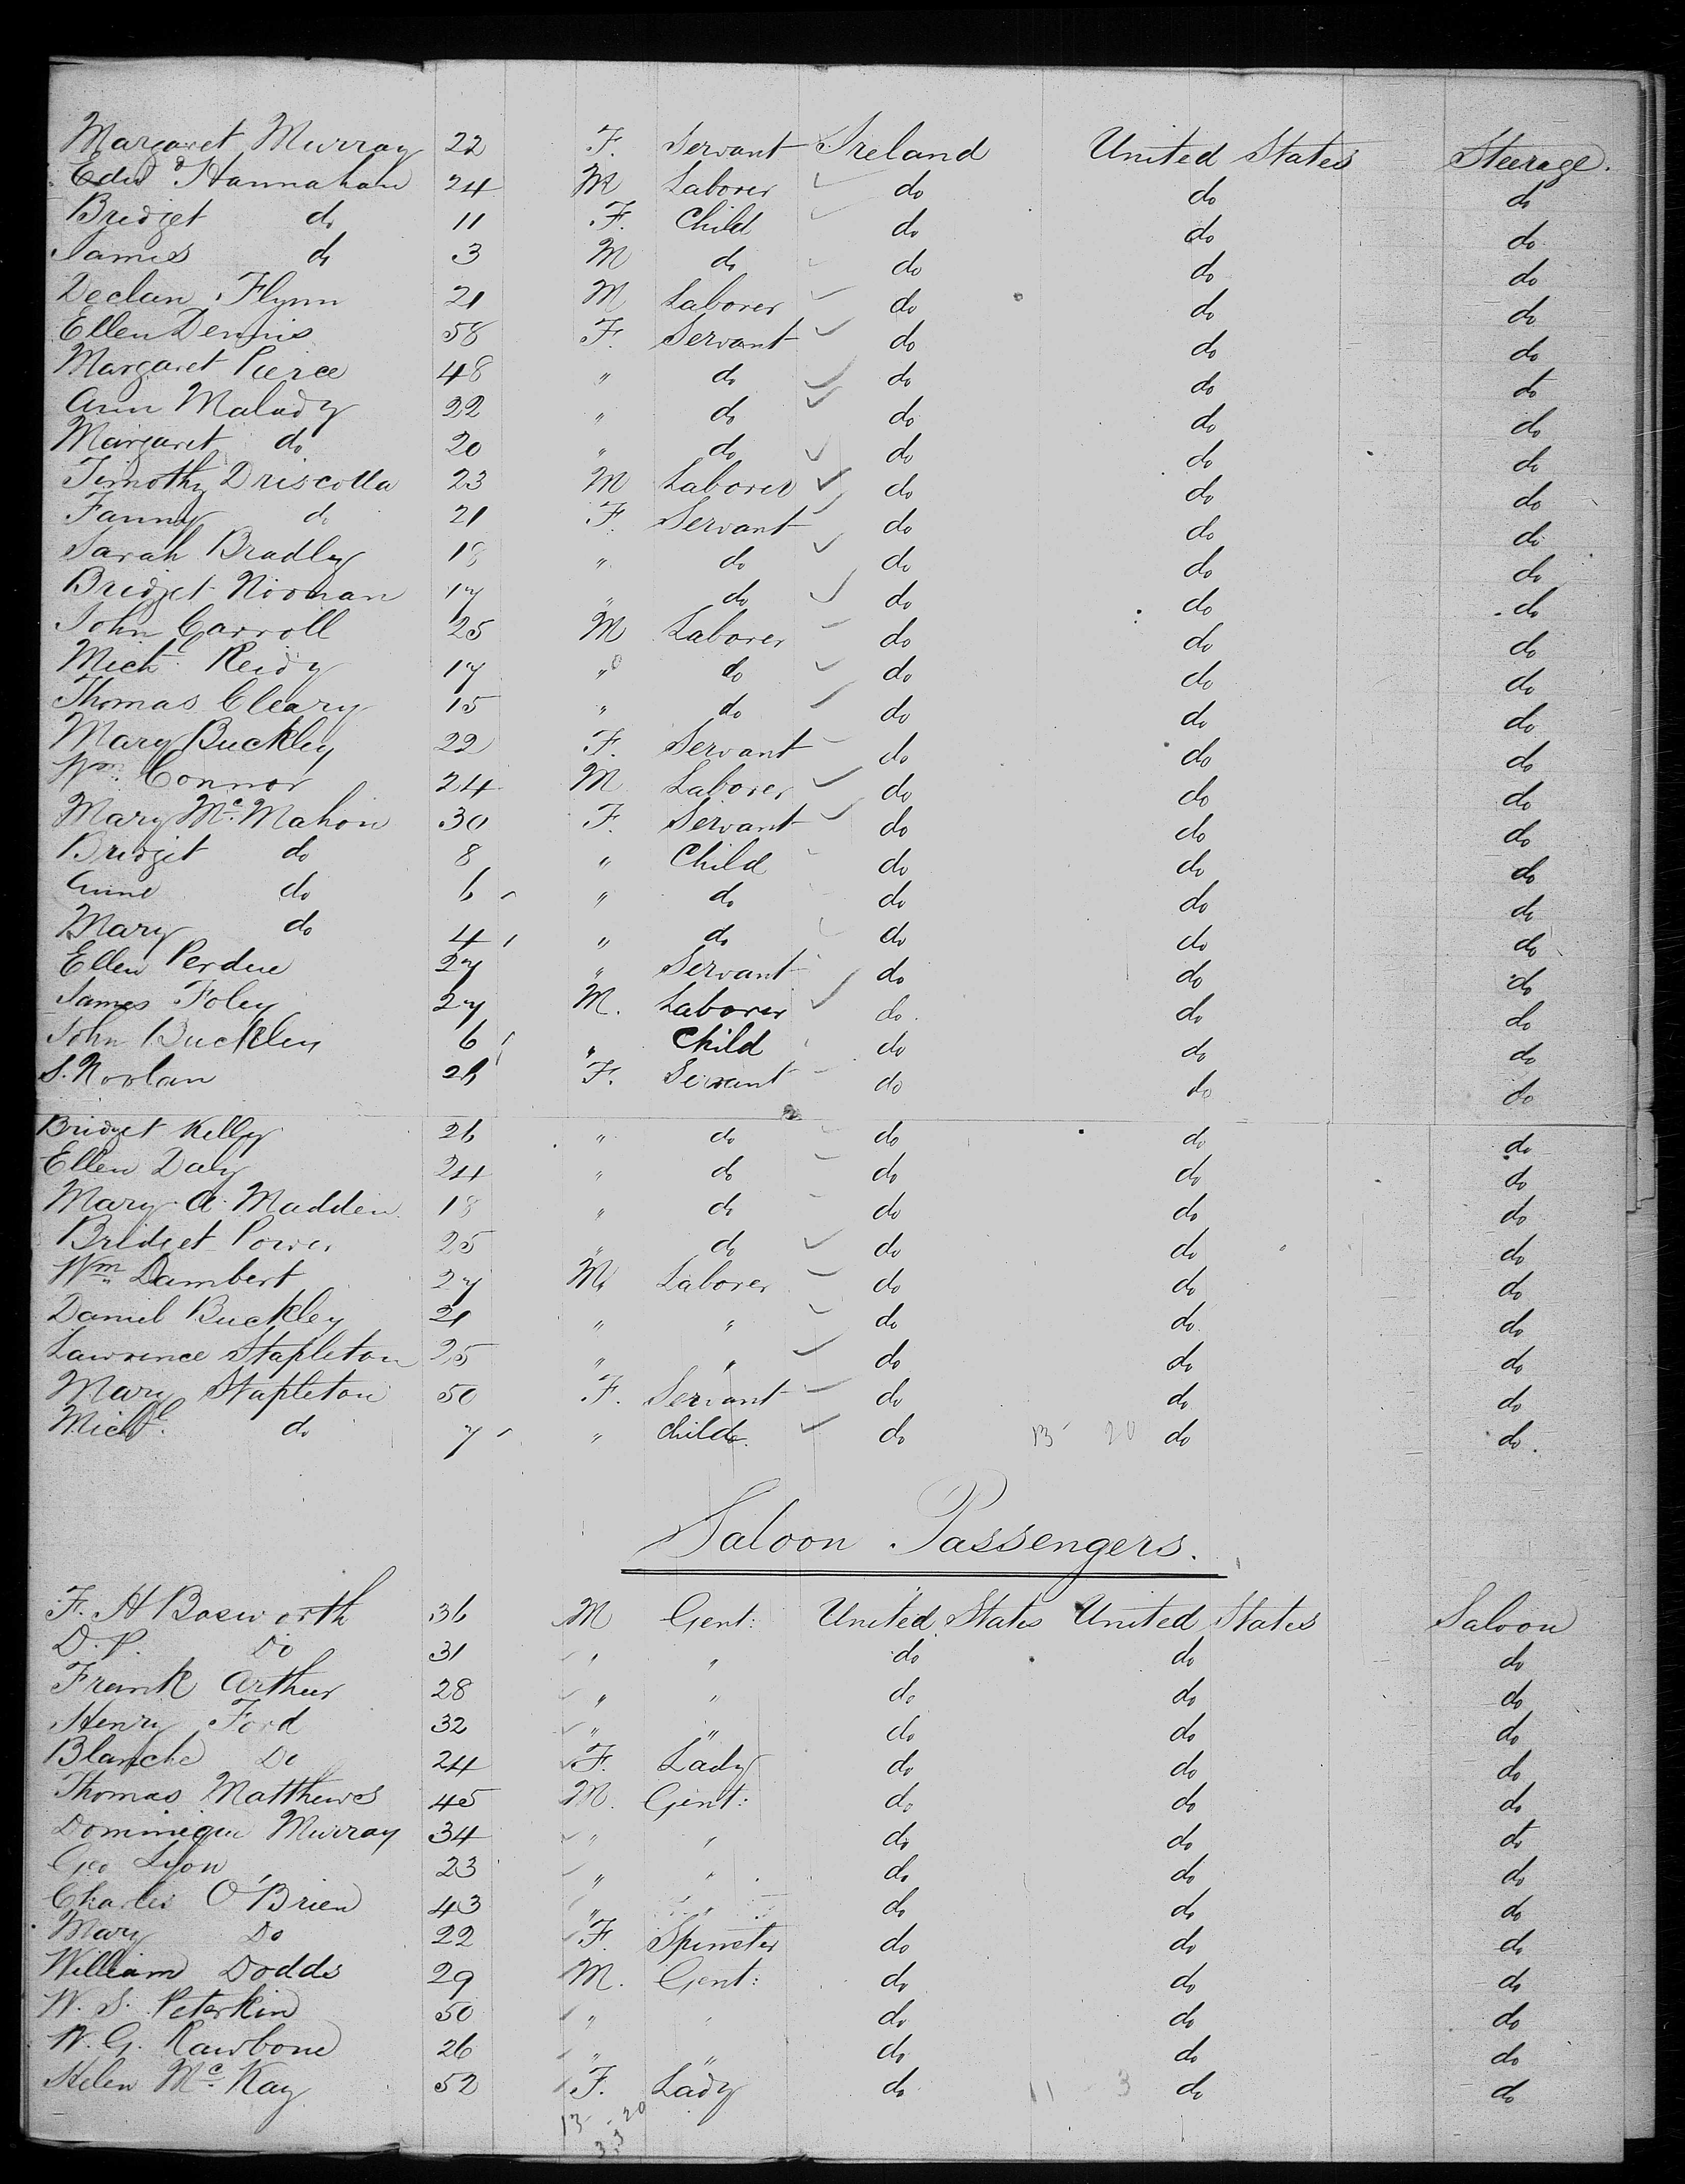 Margaret Murray 22 F. Servant Ireland United States Steerage.
Edwd Hannahan 24 M Laborer do do do
Bridget do 11 F. Child do do do
James do 3 M do do do do
Declan Flynn 21 M Laborer do do do
Ellen Dennis 58 F. Servant do do do
Margaret Pierce 48 " do do do do
Ann Malady 22 " do do do do
Margaret do 20 " do do do do
Timothy Driscolla 23 M Laborer do do do
Fanny do 21 F. Servant do do do
Sarah Bradley 18 " do do do do
Bridget Noonan 17 " do do do do
John Carroll 25 M Laborer do do do
Michl. Reidy 17 " do do do do
Thomas Cleary 15 " do do do do
Mary Buckley 22 F. Servant do do do
Wm. Connor 24 M Laborer do do do
Mary Mc.Mahon 30 F. Servant do do do
Bridget do 8 " Child do do do
Anne do 6 " do do do do
Mary do 4 " do do do do
Ellen Perdue 27 " Servant do do do
James Foley 27 M. Laborer do. do do
John Buckley 6 " Child do do do
S. Noolan F. Servant do do do
Bridget Kelly 26 " do do do do
Ellen Daly 24 " do do do do
Mary A Madden 18 " do do do do
Bridget Power 25 " do do do do
Wm Dambert 27 M. Laborer do do do
Daniel Buckley 21 " " do do do
Lawrence Stapleton 25 " " do do do
Mary Stapleton 50 F. Servant do do do
Michl. do 7 " child. do 13 20 do do.
Saloon Passengers.
F. H Bosworth 36 M Gent: United States United States Saloon
D. P. Do 31 " " do do do
Frank Arthur 28 " " do do do
Henry Ford 32 " " do do do
Blanche Do 24 F. Lady do do do
Thomas Matthews 45 M. Gent: do do do
Dominique Murray 34 " " do do do
Geo Lyon 23 " " do do do
Charles O'Brien 43 " do do do
Mary Do 22 F. Spinster do do do
William Dodds 29 M. Gent: do do do
W. S. Peterkin 50 " " do do do
W. G. Rawbone 26 " " do do do
Helen Mc. Kay 52 F. Lady do 11 3 do do
13 20
3